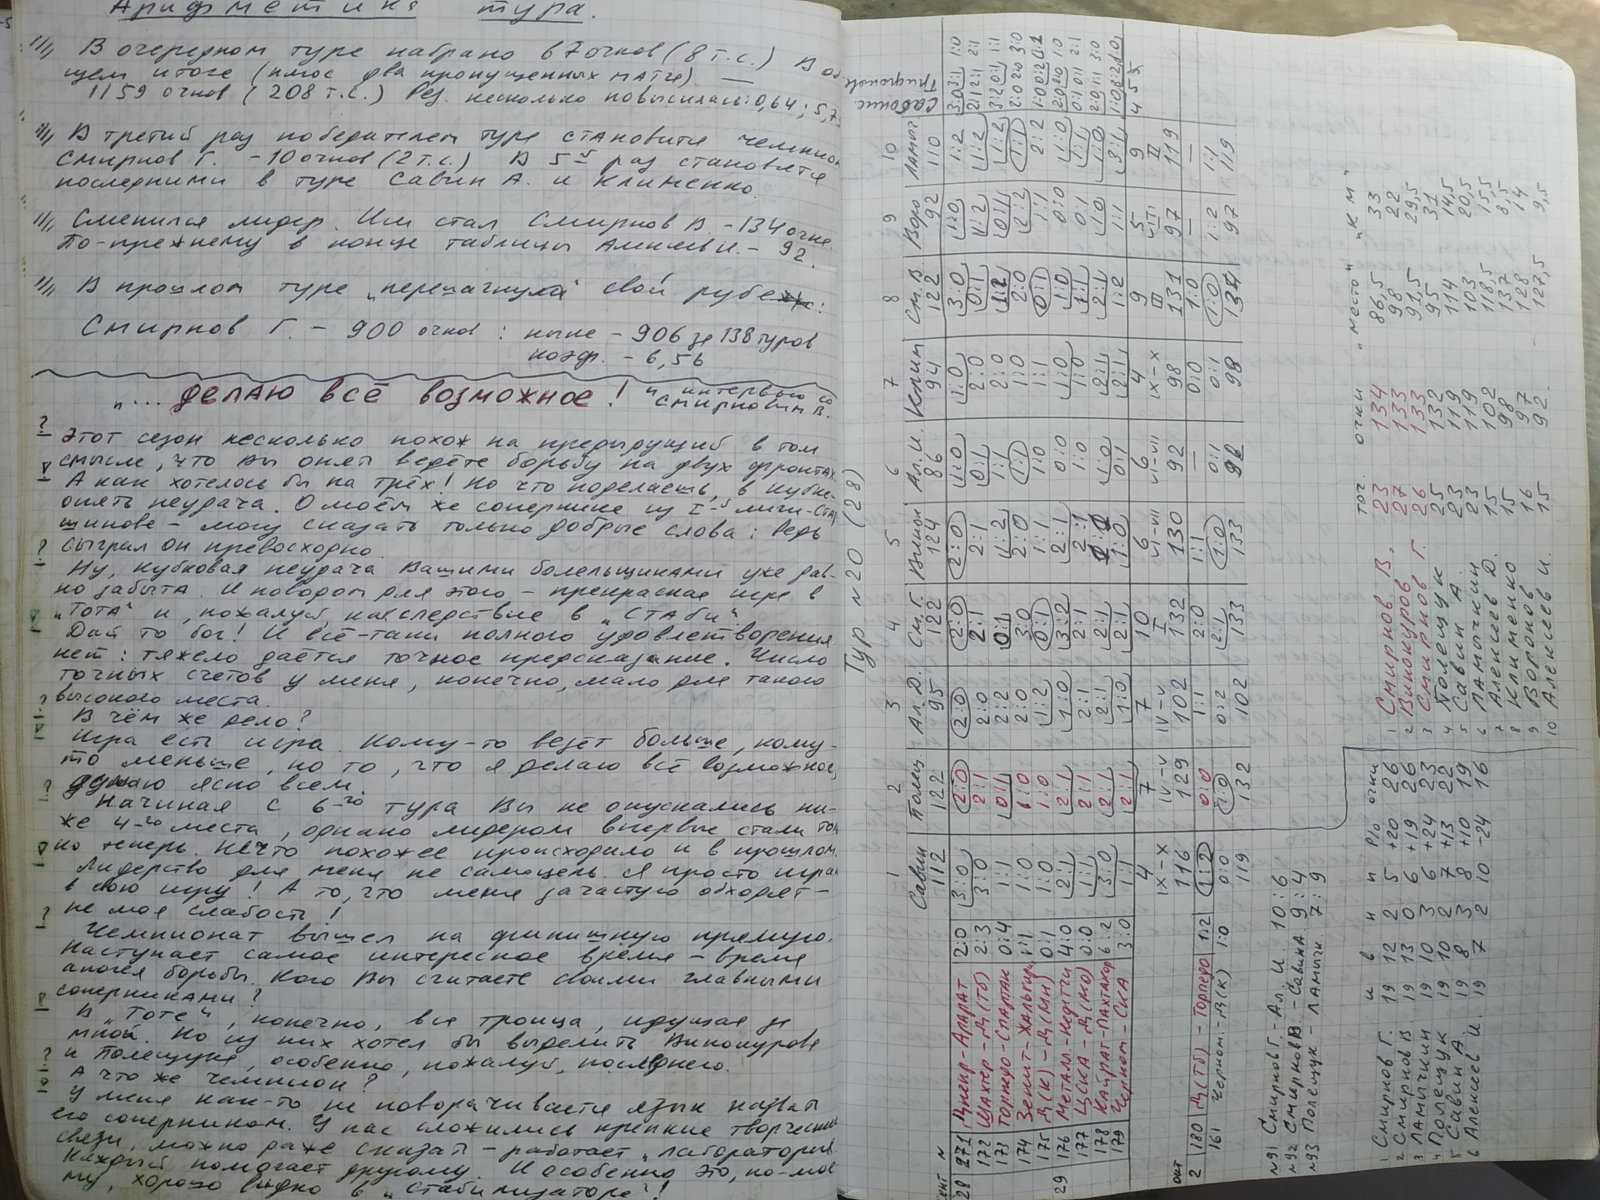 Арифметика тура.
В очередном туре набрано 67 очков (8 т.с.) В об-
щем итоге (плюс два пропущенных матча) —
1159 очков (208 т.с.) Рез. несколько повысилась: 0,64; 5,7
В третий раз победителем тура становится чемпион
Смирнов Г. - 10 очков (2 т.с.) В 5-й раз становятся
последними в туре Савин А. и Клименко.
Сменился лидер. Им стал Смирнов В. - 134 очка.
По-прежнему в конце таблицы Алексеев И. - 92.
В прошлом туре „перешагнул" свой рубеж:
Смирнов Г. - 900 очков: ныне - 906 за 138 туров
коэф. - 6,56
„... делаю всё возможное!"
интервью со
Смирновым В.
Этот сезон несколько похож на предыдущий в том
смысле, что Вы опять ведёте борьбу на двух фронтах.
А как хотелось бы на трёх! Но что поделаешь, в Кубке
опять неудача. О моём же сопернике из I-й лиги
могу сказать только добрые слова: Ведь
сыграл он превосходно.
Ну, кубковая неудача Вашими болельщиками уже дав-
но забыта. И поводом для этого - прекрасная игра в
„Тота" и, пожалуй, как следствие в „Стаби".
Дай то бог! И всё-таки полного удовлетворения
нет: тяжело даётся точное предсказание. Число
точных счетов у меня, конечно, мало для такого
высокого места.
В чём же дело?
Игра есть игра. Кому-то везёт больше, кому-
то меньше, но то, что я делаю всё возможное,
думаю ясно всем.
Начиная с 6-го тура Вы не опускались ни-
же 4-го места, однако лидером впервые стали толь
ко теперь. Нечто похожее происходило и в прошлом.
Лидерство для меня не самоцель. Я просто играю
в свою игру! А то, что меня зачастую обходят -
не моя слабость!
Чемпионат вышел на финишную прямую.
Наступает самое интересное время - время
апогея борьбы. Кого Вы считаете своими главными
соперниками?
В „Тоте", конечно, вся троица, идущая за
мной. Но из них хотел бы выделить Винокурова
и Полещука, особенно, пожалуй, последнего.
А что же чемпион?
У меня как-то не поворачивается язык назвать
его соперником. У нас сложились крепкие творческие
связи, можно даже сказать - работает „лаборатория".
Каждый помогает другому. И особенно это, по-мое
му, хорошо видно в „Стабилизаторе"!
Тур №20 (28)
1 2 3 4 5 6 7 8 9 10
Савин Полещ Ал. Д. См. Г. Винок Ал. И. Клим См. В Воро Ламыч Саволис Трифонов
112 122 95 122 124 86 94 122 92 110
28 271 Днепр - Арарат 2:0 3:0 2:0 2:0 2:0 2:0 1:0 1:0 3:0 1:0 1:2 3:0 3:1 1:0
172 Шахтер - Д(Тб) 2:3 3:0 2:1 2:0 2:1 2:1 0:1 2:0 0:1 1:2 1:2 2:1 2:1 2:1
173 Торпедо - Спартак 0:4 1:1 0:1 2:2 0:1 1:2 1:1 2:0 1:2 0:1 1:2 3:2 0:1 1:1
174 Зенит - Жальгирис 1:1 1:0 1:0 2:0 3:0 2:0 1:1 1:0 2:0 2:2 1:1 2:0 2:0 3:0
175 Д(К) - Д(Мн) 0:1 1:0 1:0 1:2 0:1 1:1 1:0 1:1 0:1 1:1 2:2 1:0 0:2 0:2
29 176 Металл - Нефтчи 4:0 2:1 2:1 1:0 3:2 2:1 0:0 1:0 1:0 0:0 1:0 2:0 2:0 1:0
177 ЦСКА - Д(Мо) 0:0 1:1 2:1 2:1 2:1 2:1 1:0 1:0 1:1 0:1 1:1 0:1 0:1 2:1
178 Кайрат - Пахтакор 6:2 3:0 2:1 2:1 2:1 1:0 2:1 2:1 1:0 1:0 2:0 1:1 3:0
179 Черном - СКА 3:0 1:1 2:1 1:0 2:1 1:0 0:1 2:1 1:2 1:1 3:1 1:0 3:2 1:0
4 7 7 10 6 6 4 9 5 9 4 5 5
IX-X IV-V IV-V I VI-VII VI-VII IX-X III VIII II
116 129 102 132 130 92 98 131 97 119
окт
2 180 Д(Тб) - Торпедо 1:2 1:2 0:0 1:1 2:0 1:1 — 0:0 1:0 — —
161 Черном - Д(К) 1:0 0:0 1:0 0:2 2:1 1:0 0:1 0:1 1:0 1:2 1:1
119 132 102 133 133 92 98 134 97 119
№91 Смирнов Г. - Ал. И. 10:6
№92 Смирнов В. - Савин А 9:4
№93 Полещук - Ламычк. 7:9
и в н п р/о очки
1 Смирнов Г. 19 12 2 5 +20 26
2 Смирнов В 19 13 0 6 +19 26
3 Ламычкин 19 10 3 6 +24 23
4 Полещук 19 10 2 7 +13 22
5 Савин А. 19 8 3 8 +10 19
6 Алексеев И. 19 7 2 10 -24 16
точ очки „место" „КМ"
1 Смирнов В. 23 134 86,5 33
2 Винокуров 27 133 98 22
3 Смирнов Г. 26 133 91,5 29,5
4 Полещук 25 132 95 31
5 Савин А. 23 119 114 14,5
6 Ламычкин 23 119 103 20,5
7 Алексеев Д. 15 102 118,5 15,5
8 Клименко 15 98 137 8,5
9 Воронов 16 97 128 14
10 Алексеев И. 15 92 127,5 9,5